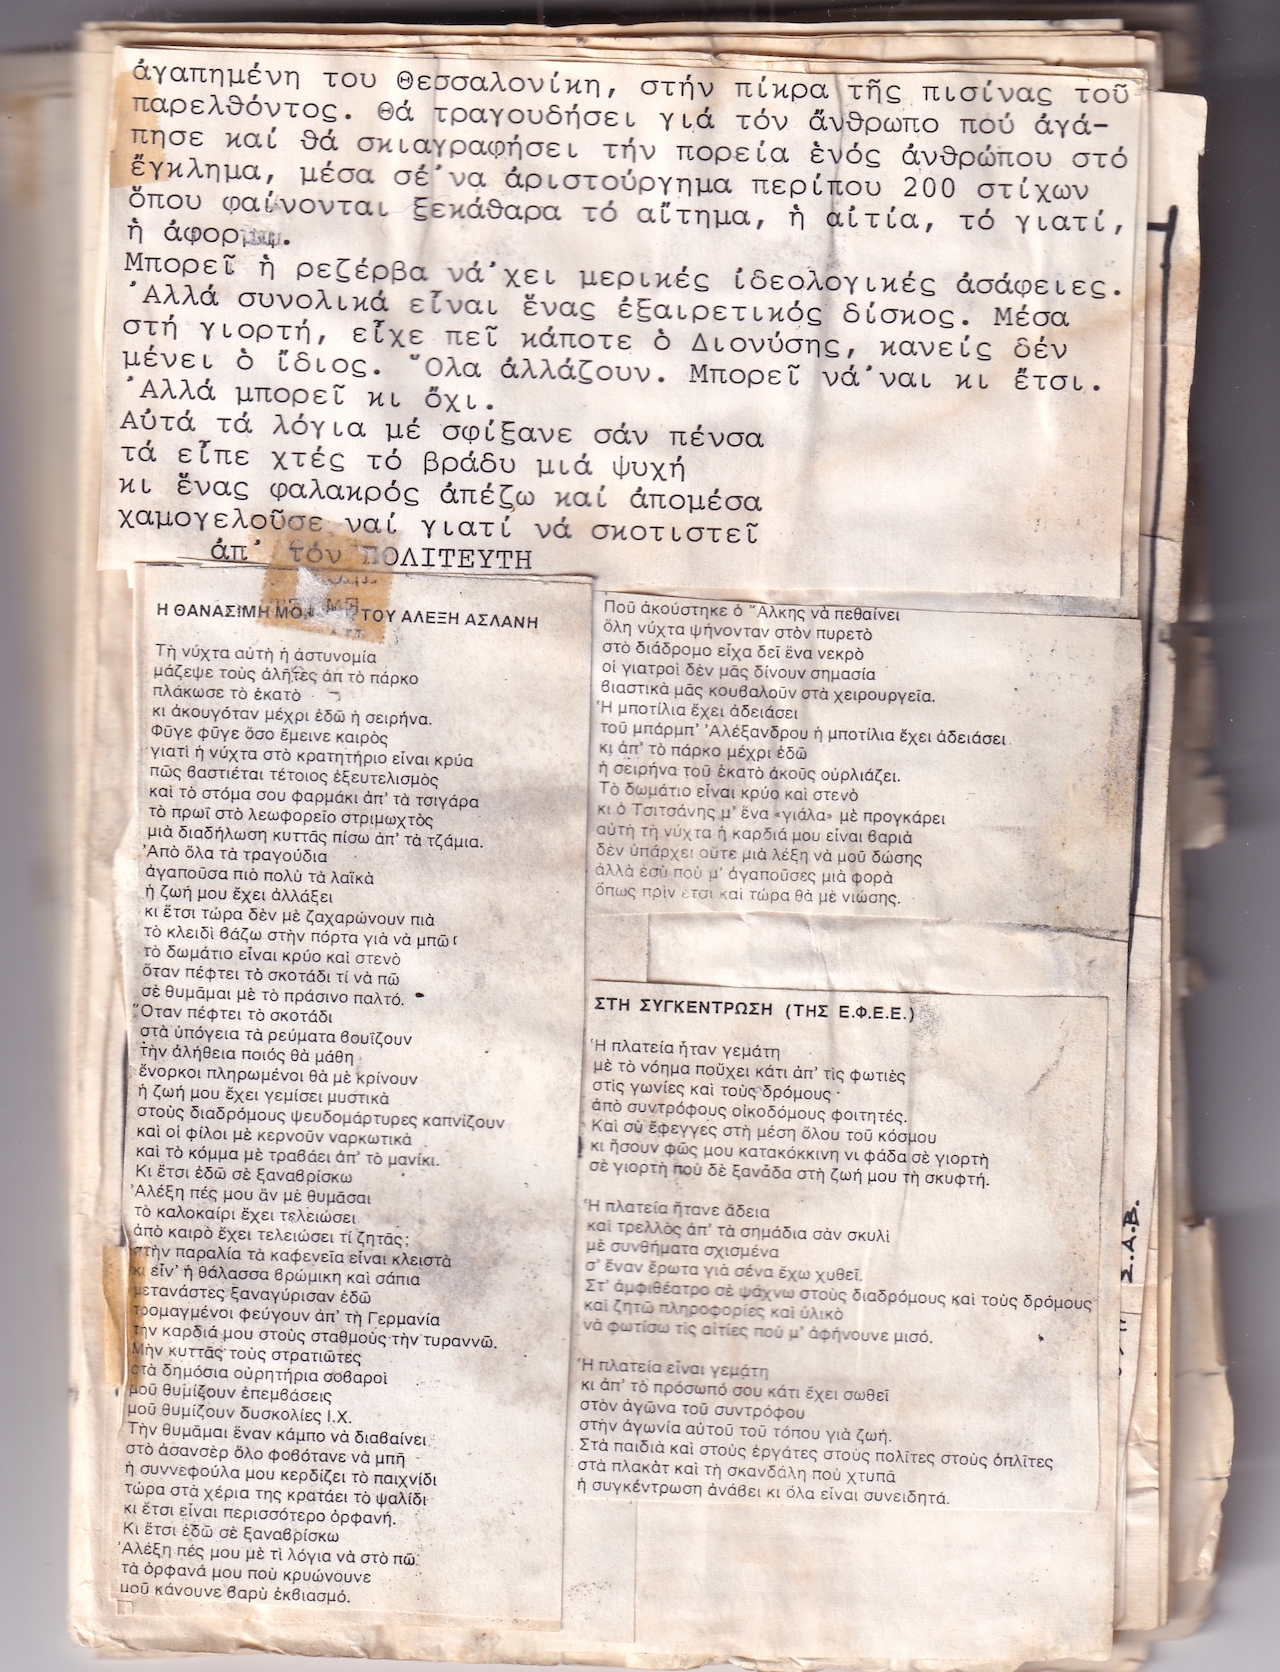 ἀγαπημένη του Θεσσαλονίκη, στήν πίκρα τῆς πισίνας τοῦ
παρελθόντος. Θά τραγουδήσει γιά τόν ἄνθρωπο πού ἀγά-
πησε καί θά σκιαγραφήσει τήν πορεία ἑνός ἀνθρώπου στό
ἔγκλημα, μέσα σέ'να ἀριστούργημα περίπου 200 στίχων
ὅπου φαίνονται ξεκάθαρα τό αἴτημα, ἡ αἰτία, τό γιατί,
ἡ ἀφορμή.
Μπορεῖ ἡ ρεζέρβα νά'χει μερικές ἰδεολογικές ἀσάφειες.
'Αλλά συνολικά εἶναι ἕνας ἐξαιρετικός δίσκος. Μέσα
στή γιορτή, εἶχε πεῖ κάποτε ὁ Διονύσης, κανείς δέν
μένει ὁ ἴδιος. "Ολα ἀλλάζουν. Μπορεῖ νά'ναι κι ἔτσι.
'Αλλά μπορεῖ κι ὄχι.
Αὐτά τά λόγια μέ σφίξανε σάν πένσα
τά εἶπε χτές τό βράδυ μιά ψυχή
κι ἕνας φαλακρός ἀπέξω καί ἀπομέσα
χαμογελοῦσε ναί γιατί νά σκοτιστεῖ
ἀπ' τόν ΠΟΛΙΤΕΥΤΗ
Η ΘΑΝΑΣΙΜΗ ΤΟΥ ΑΛΕΞΗ ΑΣΛΑΝΗ
Τὴ νύχτα αὐτὴ ἡ ἀστυνομία
μάζεψε τοὺς ἀλῆτες ἀπ τὸ πάρκο
πλάκωσε τὸ ἑκατὸ
κι ἀκουγόταν μέχρι ἐδῶ ἡ σειρήνα.
Φῦγε φῦγε ὅσο ἔμεινε καιρὸς
γιατὶ ἡ νύχτα στὸ κρατητήριο εἶναι κρύα
πῶς βαστιέται τέτοιος ἐξευτελισμὸς
καὶ τὸ στόμα σου φαρμάκι ἀπ' τὰ τσιγάρα
τὸ πρωῒ στὸ λεωφορεῖο στριμωχτὸς
μιὰ διαδήλωση κυττᾶς πίσω ἀπ' τὰ τζάμια.
'Απὸ ὅλα τὰ τραγούδια
ἀγαποῦσα πιὸ πολὺ τὰ λαϊκὰ
ἡ ζωή μου ἔχει ἀλλάξει
κι ἔτσι τώρα δὲν μὲ ζαχαρώνουν πιὰ
τὸ κλειδὶ βάζω στὴν πόρτα γιὰ νὰ μπῶ
τὸ δωμάτιο εἶναι κρύο καὶ στενὸ
ὅταν πέφτει τὸ σκοτάδι τί νὰ πῶ
σὲ θυμᾶμαι μὲ τὸ πράσινο παλτό.
"Οταν πέφτει τὸ σκοτάδι
στὰ ὑπόγεια τὰ ρεύματα βουΐζουν
τὴν ἀλήθεια ποιός θὰ μάθη
ἔνορκοι πληρωμένοι θὰ μὲ κρίνουν
ἡ ζωή μου ἔχει γεμίσει μυστικὰ
στοὺς διαδρόμους ψευδομάρτυρες καπνίζουν
καὶ οἱ φίλοι μὲ κερνοῦν ναρκωτικὰ
καὶ τὸ κόμμα μὲ τραβάει ἀπ' τὸ μανίκι.
Κι ἔτσι ἐδῶ σὲ ξαναβρίσκω
'Αλέξη πές μου ἂν μὲ θυμᾶσαι
τὸ καλοκαίρι ἔχει τελειώσει
ἀπὸ καιρὸ ἔχει τελειώσει τί ζητᾶς;
στὴν παραλία τὰ καφενεῖα εἶναι κλειστὰ
κι εἶν' ἡ θάλασσα βρώμικη καὶ σάπια
μετανάστες ξαναγύρισαν ἐδῶ
τρομαγμένοι φεύγουν ἀπ' τὴ Γερμανία
τὴν καρδιά μου στοὺς σταθμοὺς τὴν τυραννῶ.
Μὴν κυττᾶς τοὺς στρατιῶτες
στὰ δημόσια οὐρητήρια σοβαροὶ
μοῦ θυμίζουν ἐπεμβάσεις
μοῦ θυμίζουν δυσκολίες Ι.Χ.
Τὴν θυμᾶμαι ἕναν κάμπο νὰ διαβαίνει
στὸ ἀσανσὲρ ὅλο φοβότανε νὰ μπῆ
ἡ συννεφούλα μου κερδίζει τὸ παιχνίδι
τώρα στὰ χέρια της κρατάει τὸ ψαλίδι
κι ἔτσι εἶναι περισσότερο ὀρφανή.
Κι ἔτσι ἐδῶ σὲ ξαναβρίσκω
'Αλέξη πές μου μὲ τὶ λόγια νὰ στὸ πῶ
τὰ ὀρφανά μου ποὺ κρυώνουνε
μοῦ κάνουνε βαρὺ ἐκβιασμό.
Ποῦ ἀκούστηκε ὁ "Αλκης νὰ πεθαίνει
ὅλη νύχτα ψήνονταν στὸν πυρετὸ
στὸ διάδρομο εἶχα δεῖ ἕνα νεκρὸ
οἱ γιατροὶ δὲν μᾶς δίνουν σημασία
βιαστικὰ μᾶς κουβαλοῦν στὰ χειρουργεῖα.
Ἡ μποτίλια ἔχει ἀδειάσει
τοῦ μπάρμπ' 'Αλέξανδρου ἡ μποτίλια ἔχει ἀδειάσει
κι ἀπ' τὸ πάρκο μέχρι ἐδῶ
ἡ σειρήνα τοῦ ἑκατὸ ἀκοῦς οὐρλιάζει.
Τὸ δωμάτιο εἶναι κρύο καὶ στενὸ
κι ὁ Τσιτσάνης μ' ἕνα «γιάλα» μὲ προγκάρει
αὐτὴ τὴ νύχτα ἡ καρδιά μου εἶναι βαριὰ
δὲν ὑπάρχει οὔτε μιὰ λέξη νὰ μοῦ δώσης
ἀλλὰ ἐσὺ ποὺ μ' ἀγαποῦσες μιὰ φορὰ
ὅπως πρὶν ἔτσι καὶ τώρα θὰ μὲ νιώσης.
ΣΤΗ ΣΥΓΚΕΝΤΡΩΣΗ (ΤΗΣ Ε.Φ.Ε.Ε.)
Ἡ πλατεία ἦταν γεμάτη
μὲ τὸ νόημα ποὔχει κάτι ἀπ' τὶς φωτιὲς
στὶς γωνίες καὶ τοὺς δρόμους
ἀπὸ συντρόφους οἰκοδόμους φοιτητές.
Καὶ σὺ ἔφεγγες στὴ μέση ὅλου τοῦ κόσμου
κι ἤσουν φῶς μου κατακόκκινη νιφάδα σὲ γιορτὴ
σὲ γιορτὴ ποὺ δὲ ξανάδα στὴ ζωή μου τὴ σκυφτή.
Ἡ πλατεία ἤτανε ἄδεια
καὶ τρελλὸς ἀπ' τὰ σημάδια σὰν σκυλὶ
μὲ συνθήματα σχισμένα
σ' ἕναν ἔρωτα γιὰ σένα ἔχω χυθεῖ.
Στ' ἀμφιθέατρο σὲ ψάχνω στοὺς διαδρόμους καὶ τοὺς δρόμους
καὶ ζητῶ πληροφορίες καὶ ὑλικὸ
νὰ φωτίσω τὶς αἰτίες ποὺ μ' ἀφήνουνε μισό.
Ἡ πλατεία εἶναι γεμάτη
κι ἀπ' τὸ πρόσωπό σου κάτι ἔχει σωθεῖ
στὸν ἀγῶνα τοῦ συντρόφου
στὴν ἀγωνία αὐτοῦ τοῦ τόπου γιὰ ζωή.
Στὰ παιδιὰ καὶ στοὺς ἐργάτες στοὺς πολῖτες στοὺς ὁπλῖτες
στὰ πλακὰτ καὶ τὴ σκανδάλη ποὺ χτυπᾶ
ἡ συγκέντρωση ἀνάβει κι ὅλα εἶναι συνειδητά.
Σ.Α.Β.